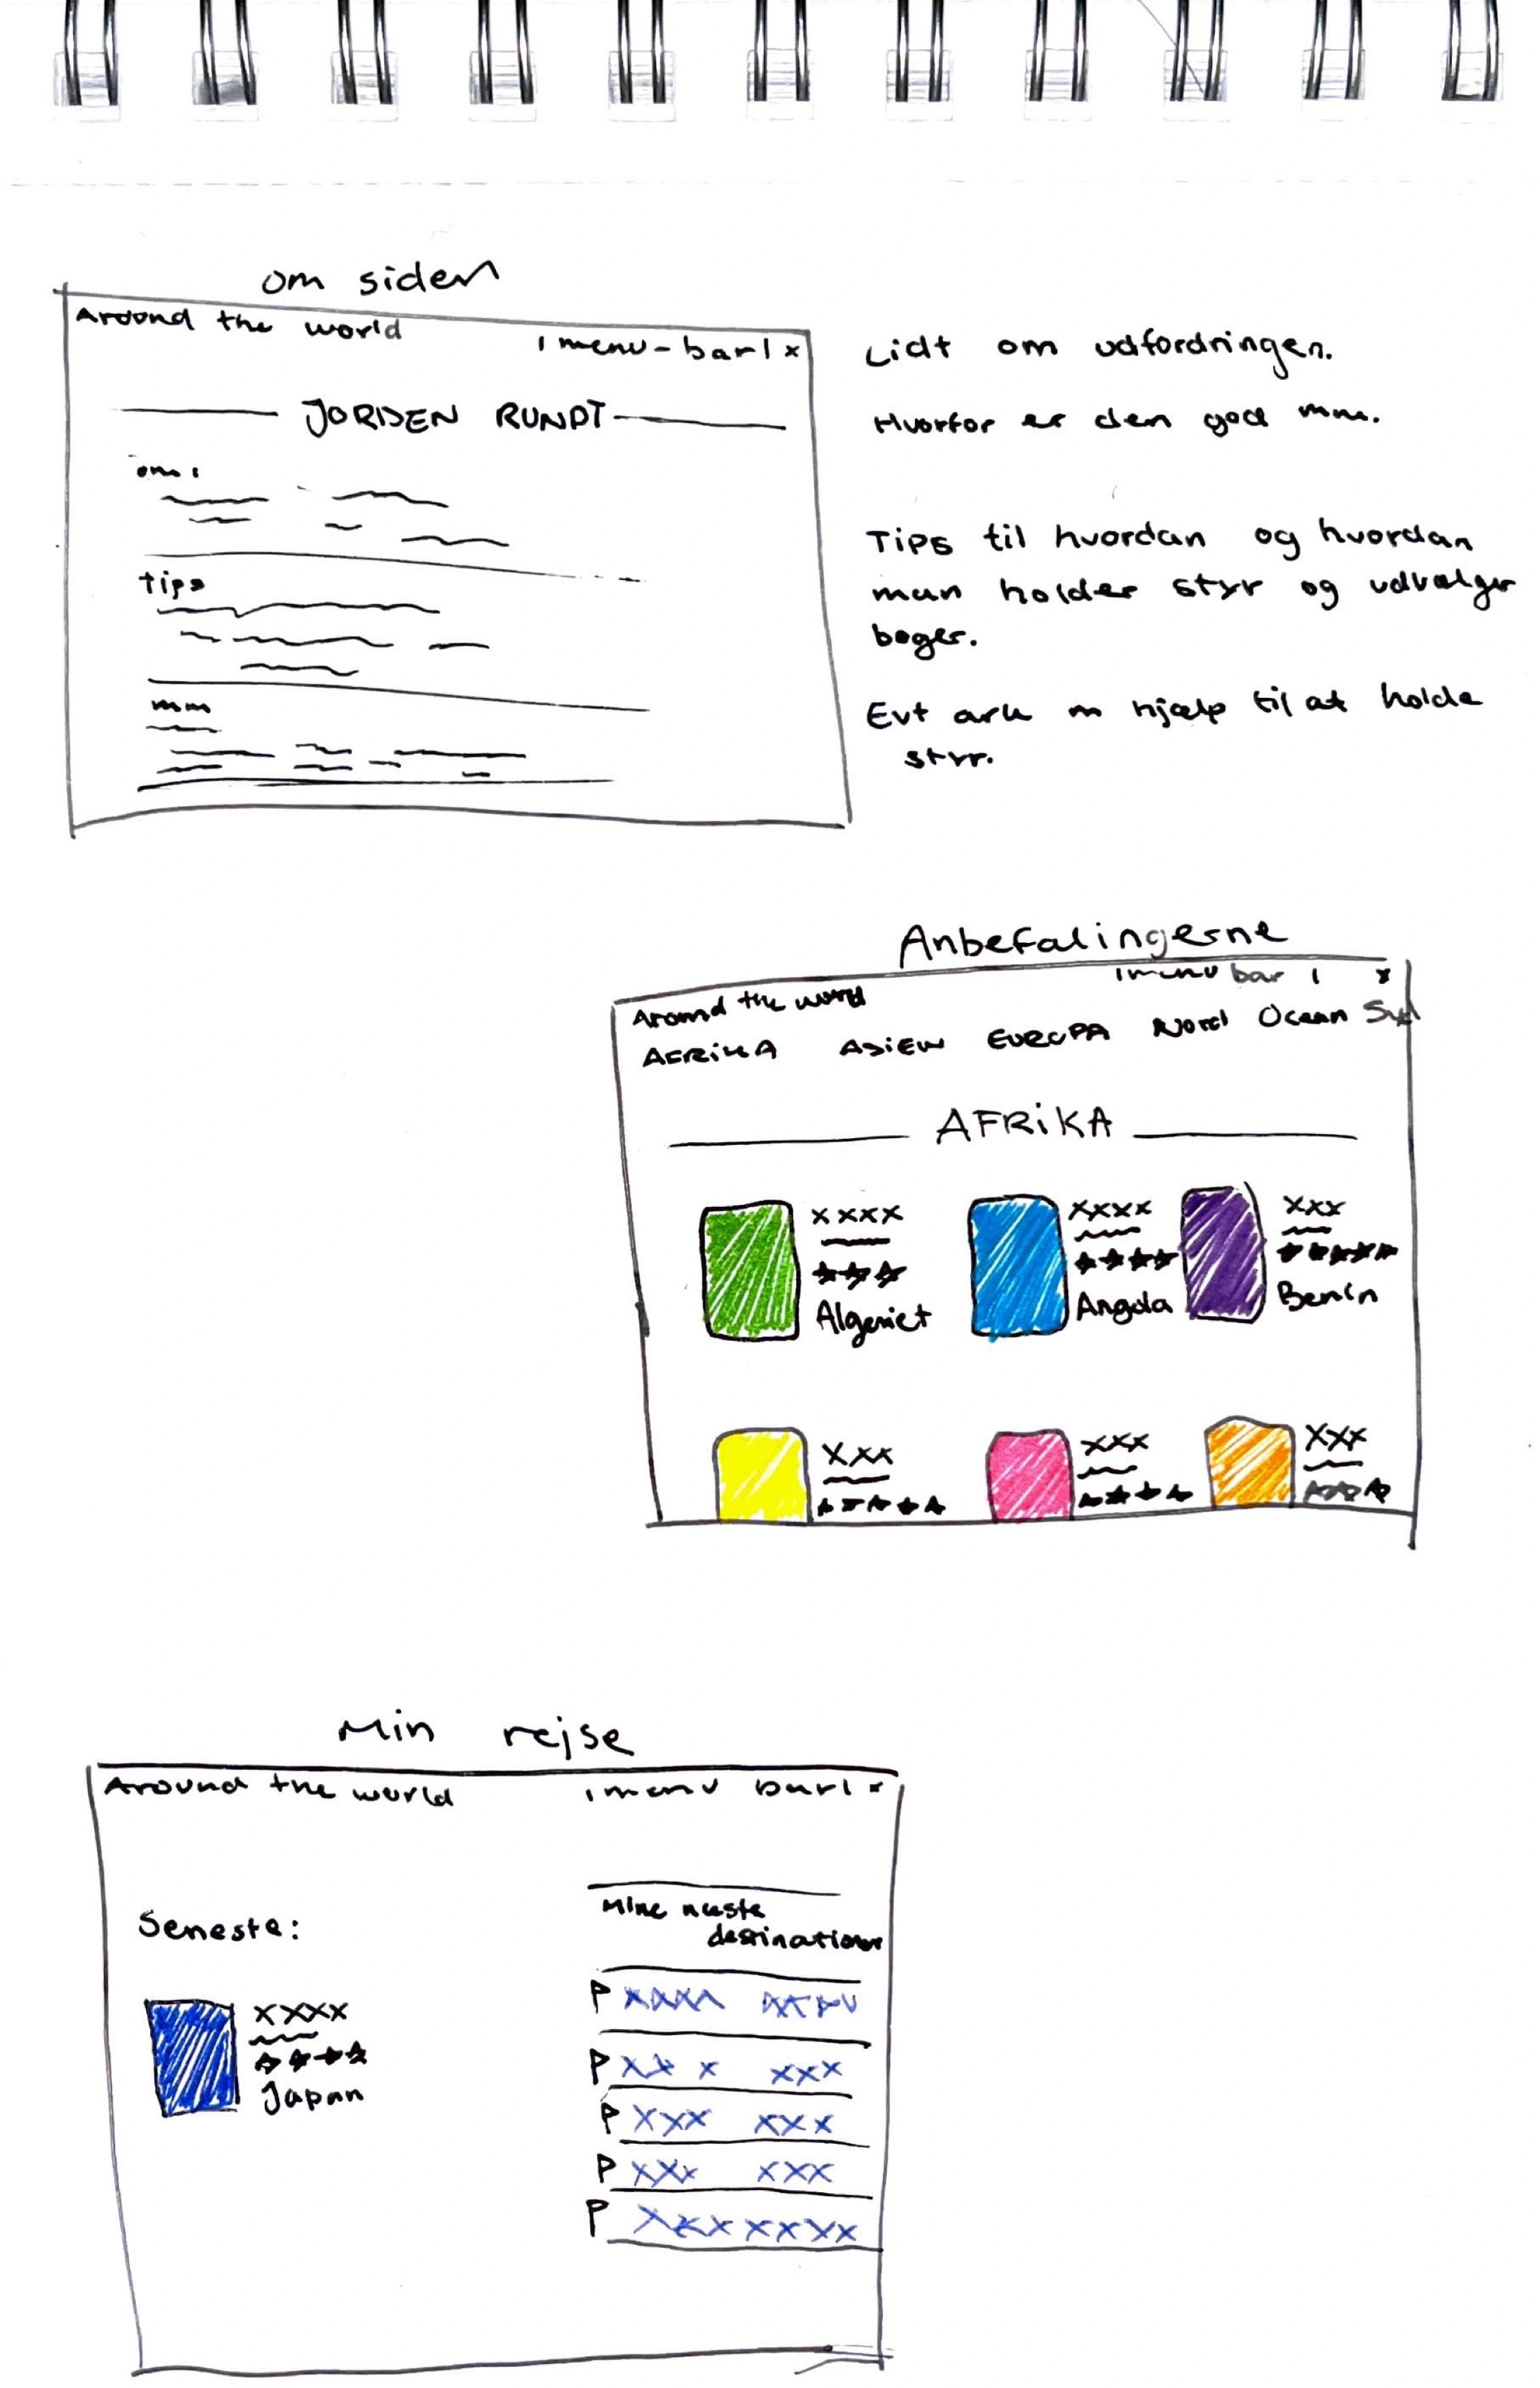 om siden
Around the world
| menu-bar | x
JORDEN RUNDT
om:
tips
mm
Lidt om udfordringen.
Hvorfor er den god mm.
Tips til hvordan og hvordan
man holder styr og udvælger
bøger.
Evt ark m hjælp til at holde
styr.
Anbefalingerne
| menu bar | x
Around the world
AFRIKA ASIEN EUROPA Nord Ocean Syd
AFRIKA
xxxx
Algeriet
xxxx
Angola
xxx
Benin
xxx
xxx
xxx
Min rejse
Around the world
| menu bar | x
Seneste:
xxxx
Japan
Mine næste
destinationer
P xxxx
P xx x xxx
P xxx xxx
P xxx xxx
P xxx xxxx